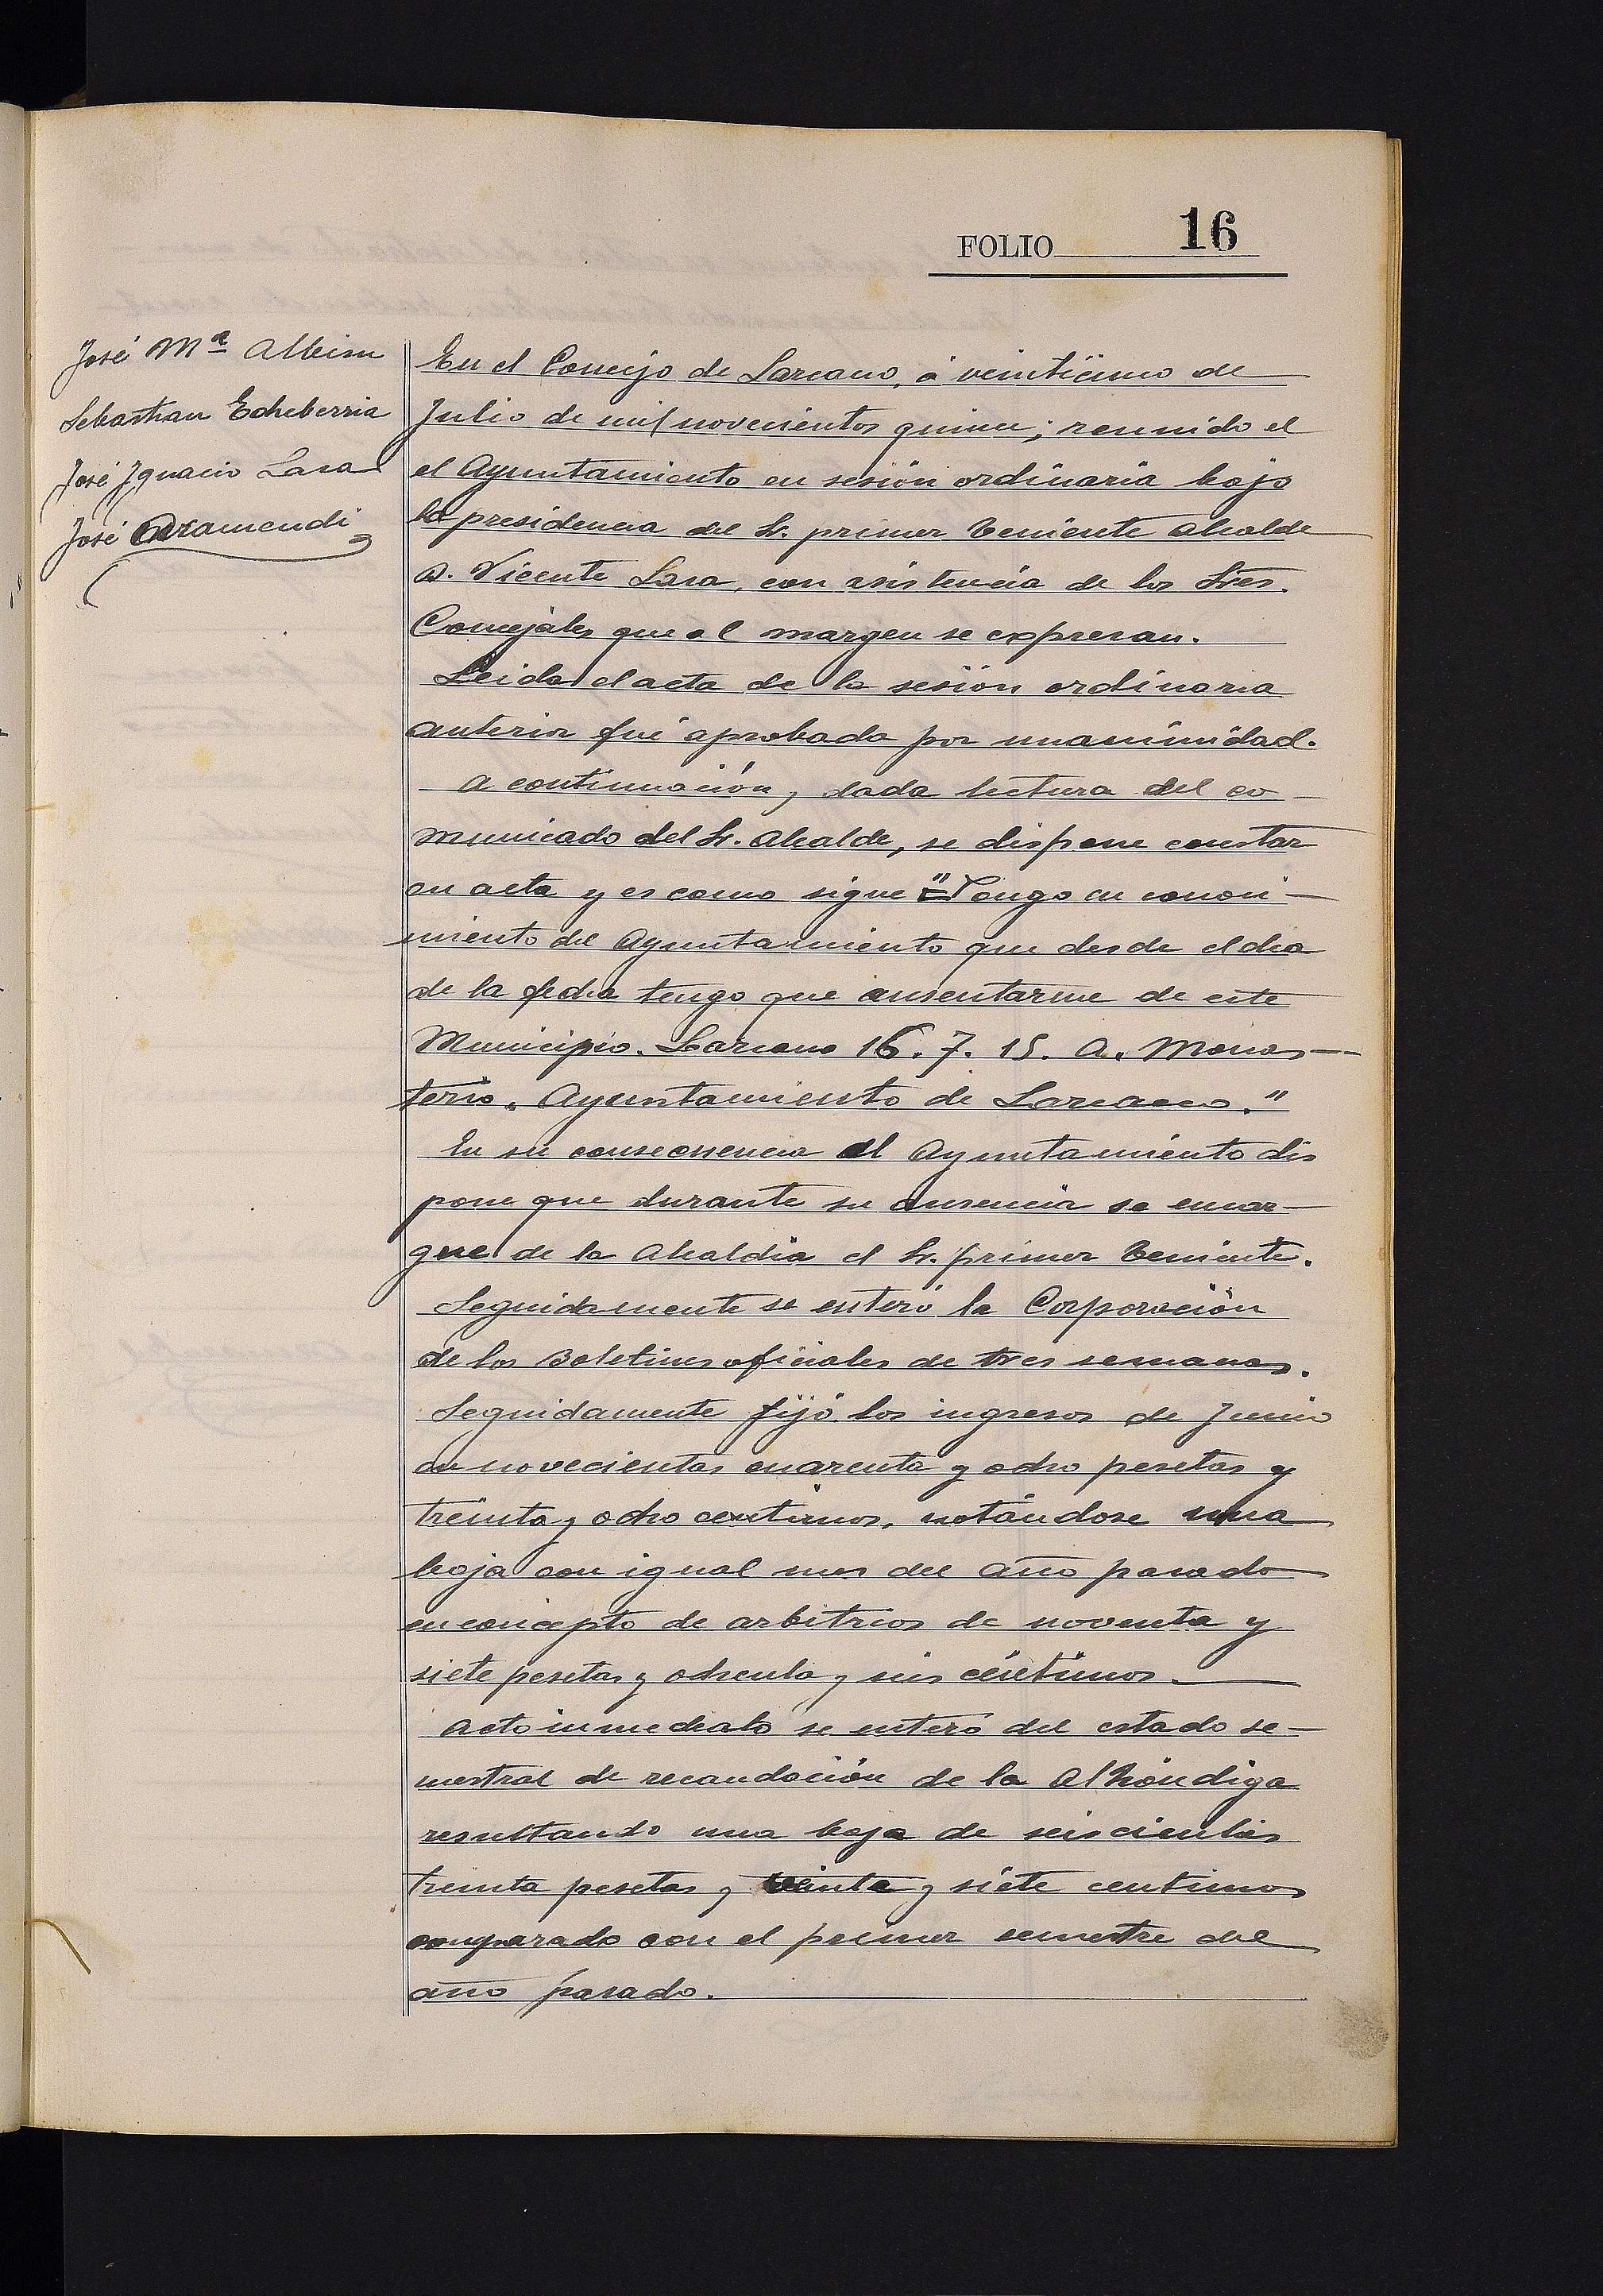 FOLIO 16
José Mª Albisu
Sebastian Echeberria
José Ignacio Lasa
José Aramendi
En el Concejo de Lazcano, á veintiuno de
Julio de mil novecientos quince; reunido el
el Ayuntamiento en sesión ordinaria bajo
la presidencia del Sr. primer Teniente Alcalde
D. Vicente Lasa, con asistencia de los Sres.
Concejales que al margen se expresan.
Leida el acta de la sesión ordinaria
anterior fué aprobada por unanimidad.
A continuación, dada lectura del co-
municado del Sr. Alcalde, se dispone constar
en acta y es como sigue "Pongo en conoci-
miento del Ayuntamiento que desde el dia
de la fecha tengo que ausentarme de este
Municipio. Lazcano 16.7.15. A. Monas-
terio. Ayuntamiento de Lazcano."
En su consecuencia el Ayuntamiento dis
pone que durante su ausencia se encar-
gue de la Alcaldia el Sr. primer Teniente.
Seguidamente se enteró la Corporación
de los Boletines oficiales de tres semanas.
Seguidamente fijó los ingresos de Junio
en novecientas cuarenta y ocho pesetas y
treinta y ocho centimos, notándose una
baja con igual mes del año pasado
en concepto de arbitrios de noventa y
siete pesetas y ochenta y seis céntimos.
Acto inmediato se enteró del estado se-
mestral de recaudación de la Alhóndiga
resultando una baja de seiscientas
treinta pesetas y y siete centimos
comparado con el primer semestre del
año pasado.